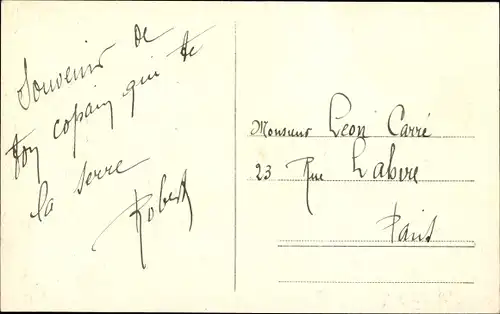 Souvenir de
ton copain qui te
la serre
Robert
Monsieur Léon Carré
23 Rue
Paris